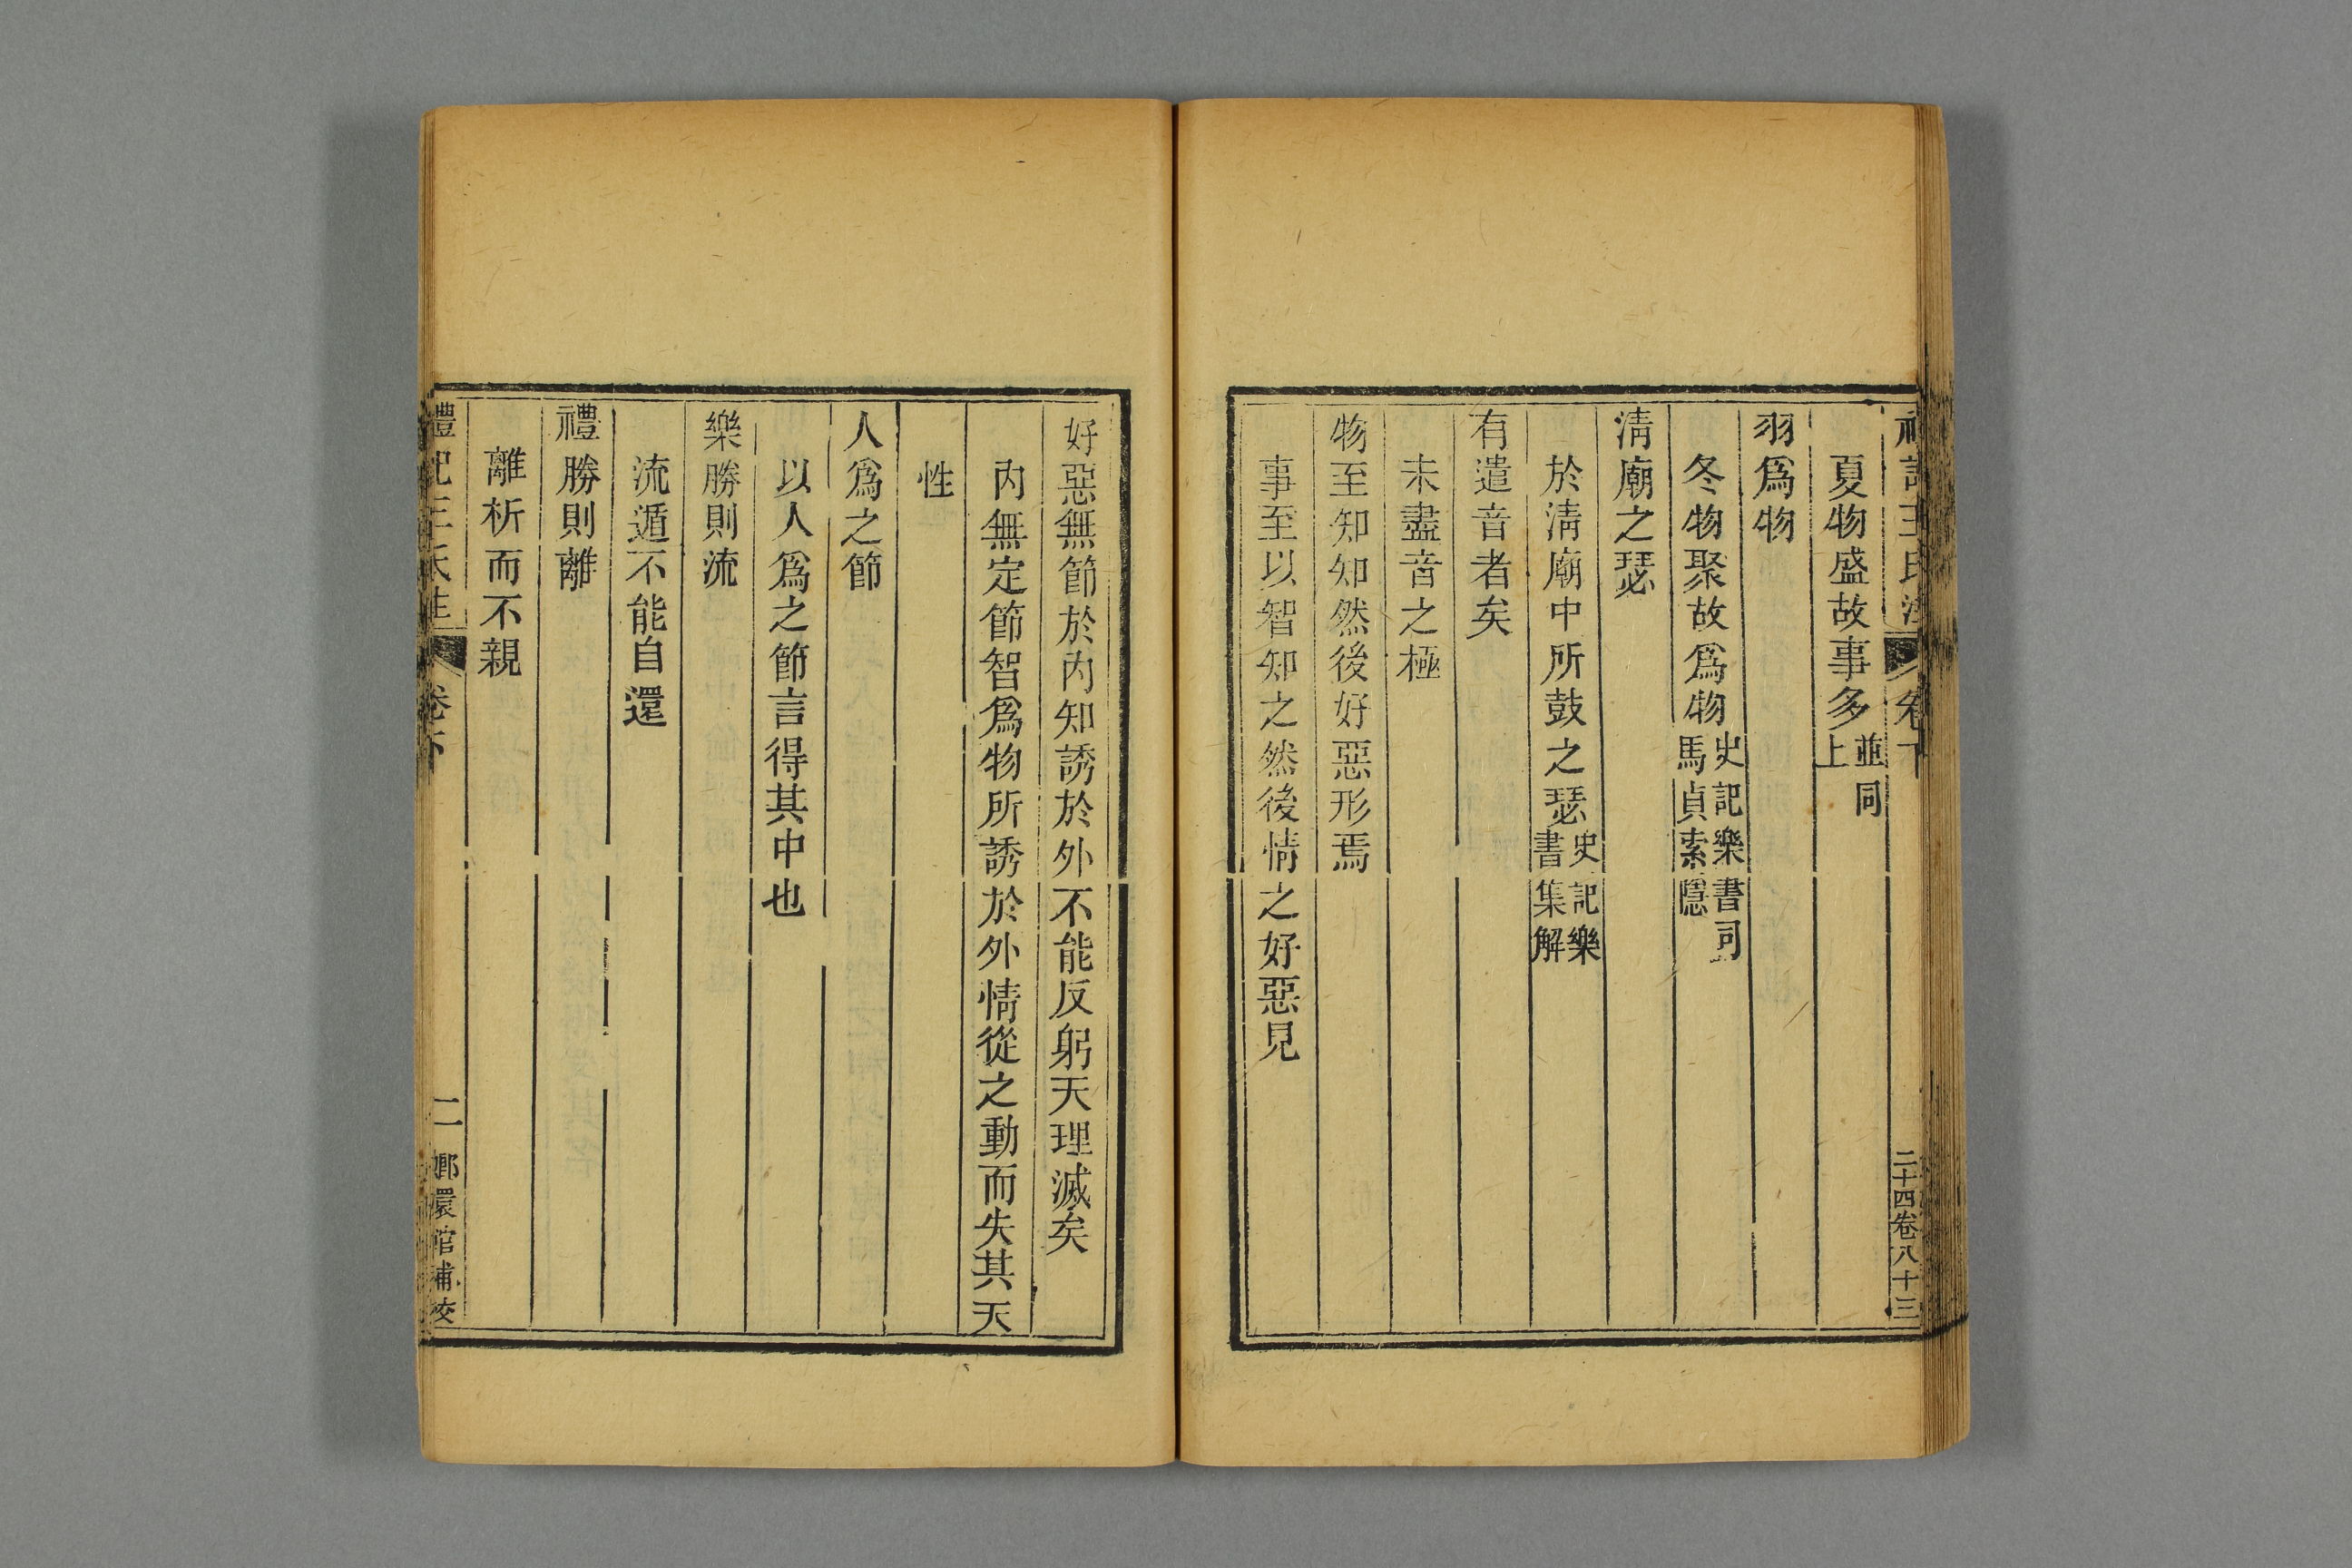 禮記王氏注 卷下 二十四卷八十三
夏物盛故事多並同上
羽爲物
冬物聚故爲物史記樂書司馬貞索隱
淸廟之瑟
於淸廟中所鼓之瑟史記樂書集解
有遺音者矣
未盡音之極
物至知知然後好惡形焉
事至以智知之然後情之好惡見
好惡無節於內知誘於外不能反躬天理滅矣
內無定節智爲物所誘於外情從之動而失其天
性
人爲之節
以人爲之節言得其中也
樂勝則流
流遁不能自還
禮勝則離
離析而不親
禮記王氏注 卷下 二 嫏嬛館補校